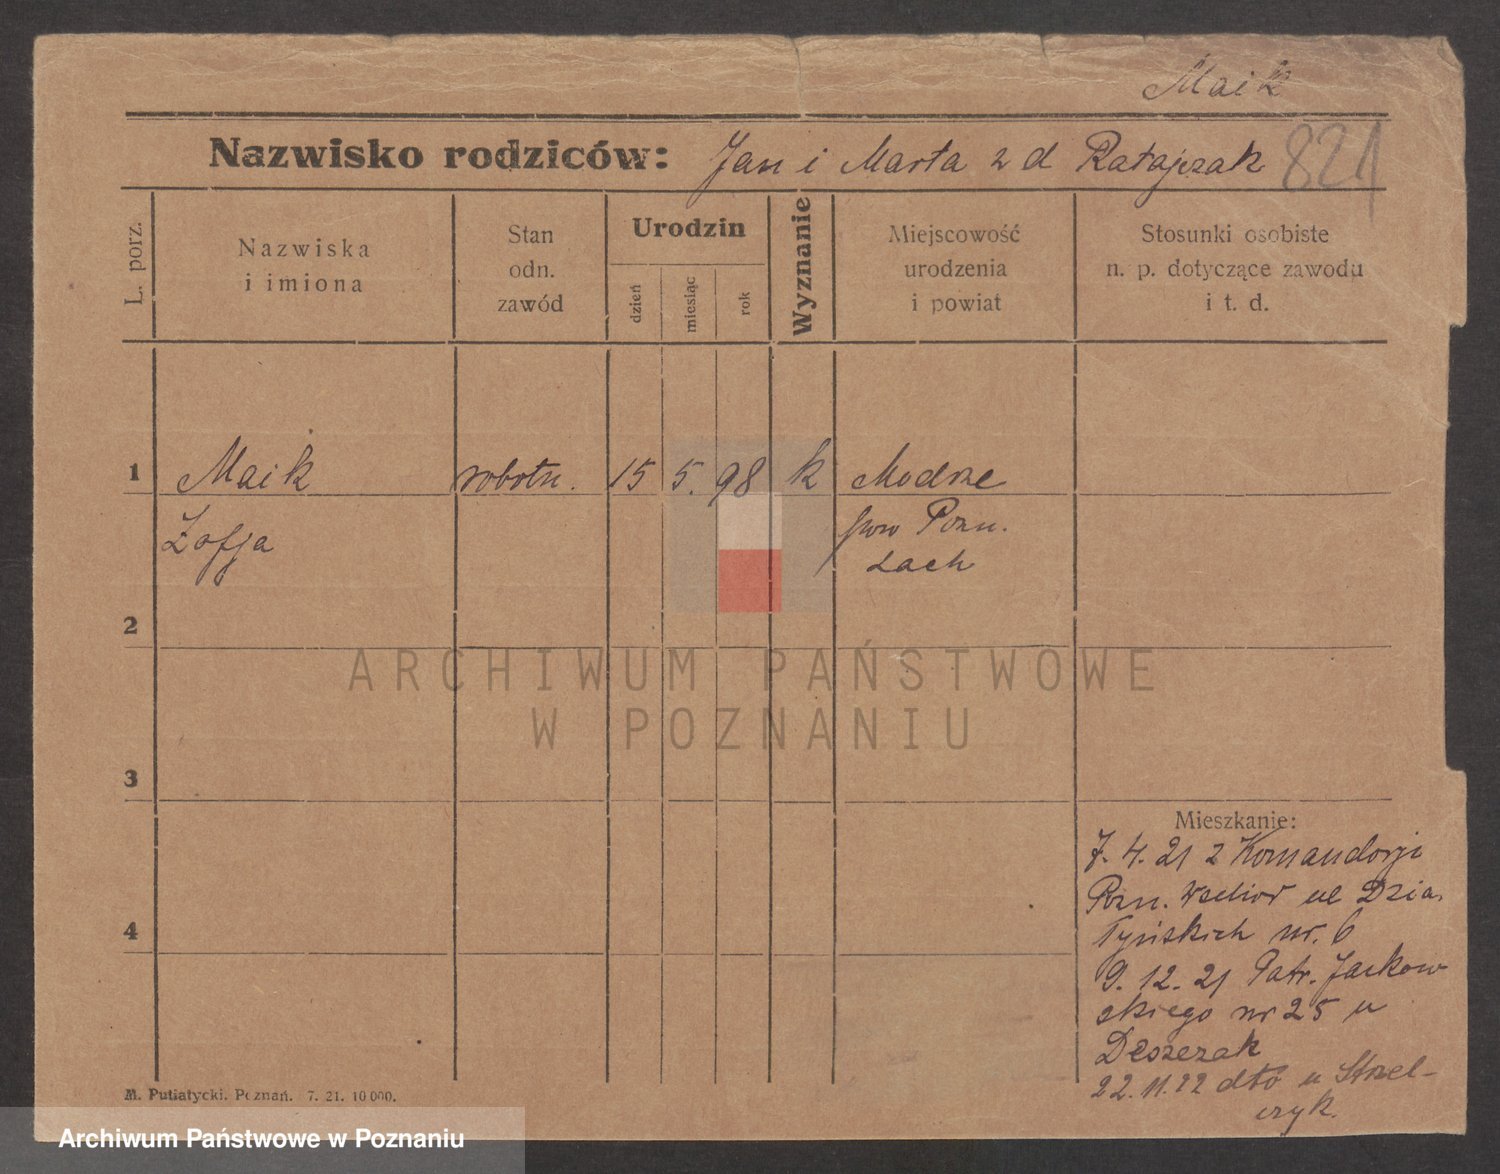 Maik
Nazwisko rodziców: Jan i Marta z d Ratajczak 821
L. porz.
Nazwiska
i imiona
Stan
odn.
zawód
Urodzin
dzień
miesiąc
rok
Wyznanie
Miejscowość
urodzenia
i powiat
Stosunki osobiste
n. p. dotyczące zawodu
i t. d.
1 Maik robotn. 15 5. 98 k Modrze
Zofja pow Pozn.
Zach
2
3
4
Mieszkanie:
7. 4. 21 z Komandorji
Pozn. Wschód ul Dzia-
łyńskich nr. 6
9. 12. 21 Patr. Jackow
skiego nr 25 u
Deszczak
22. 11. 22 dto u Strzel-
czyk.
M. Putiatycki. Poznań. 7. 21. 10 000.
ARCHIWUM PAŃSTWOWE
W POZNANIU
Archiwum Państwowe w Poznaniu